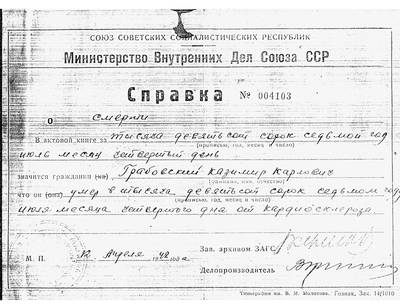 СОЮЗ СОВЕТСКИХ СОЦИАЛИСТИЧЕСКИХ РЕСПУБЛИК
Министерство Внутренних Дел Союза ССР
Справка № 004103
о смерти
В актовой книге за тысяча девятьсот сорок седьмой год
(прописью, год, месяц и число)
июль месяц четвертый день
значится гражданин (ка) Грабовский Казимир Карлович
(фамилия, имя, отчество)
что он (она) умер в тысяча девятьсот сорок седьмом году
(прописью, год, месяц и число)
июля месяца четвертого дня от кардиосклероза.
Зав. архивом ЗАГС
М. П. 12 апреля 1948 года
Делопроизводитель
Типография им. В. М. Молотова. Гознак. Зак. 14/1010